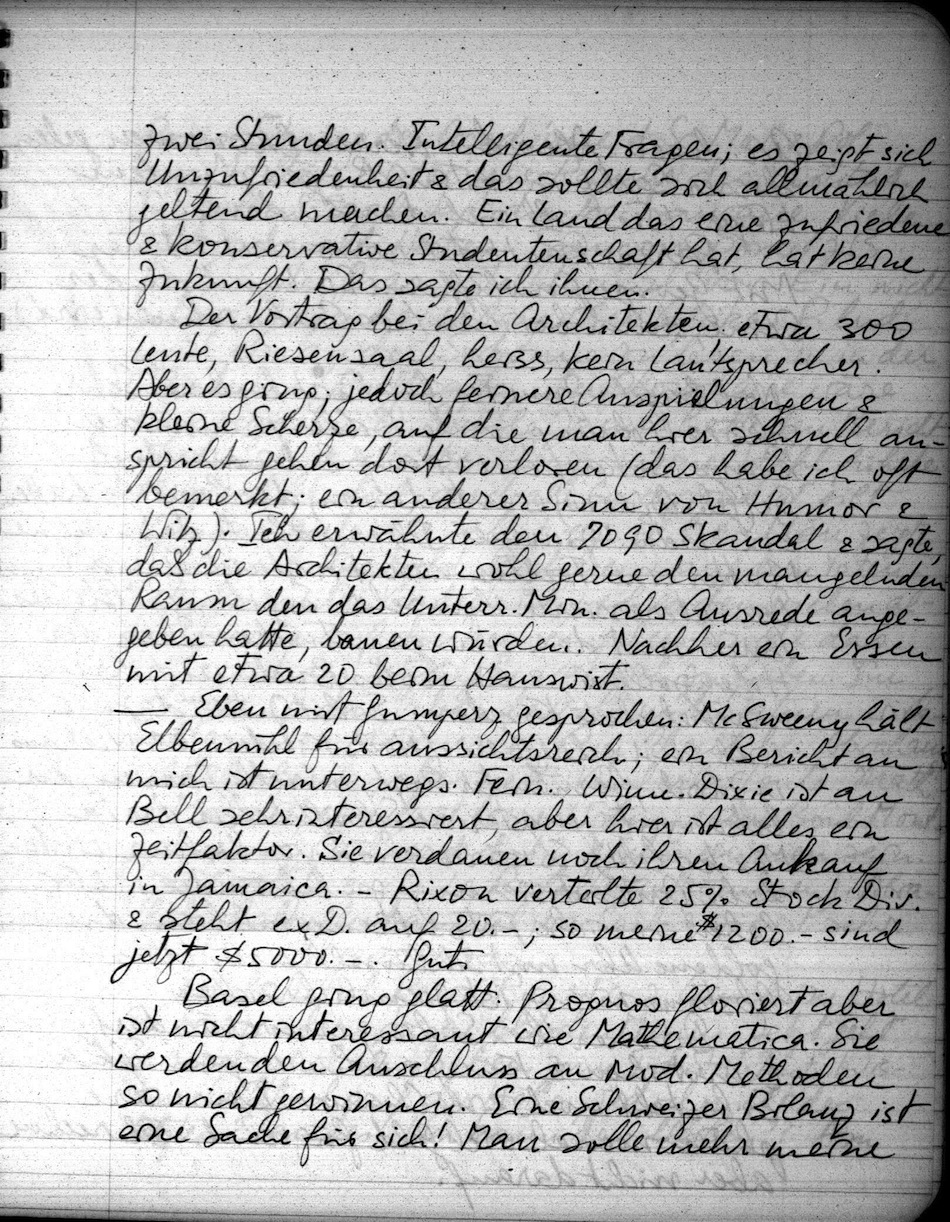 zwei Stunden. Intelligente Fragen; es zeigt sich
Unzufriedenheit & das sollte sich allmählich
geltend machen. Ein Land das eine zufriedene
& konservative Studentenschaft hat, hat keine
Zukunft. Das sagte ich ihnen.
Der Vortrag bei den Architekten, etwa 300
Leute, Riesensaal, heiss, kein Lautsprecher.
Aber es ging; jedoch feinere Anspielungen &
kleine Scherze, auf die man hier schnell an-
spricht gehen dort verloren (das habe ich oft
bemerkt; ein anderer Sinn von Humor &
Witz). Ich erwähnte den 7090 Skandal & sagte,
daß die Architekten wohl gerne den mangelnden
Raum den das Unterr. Min. als Ausrede ange-
geben hatte, bauen würden. Nachher ein Essen
mit etwa 20 beim Hauswirt.
— Eben mit Gumperz gesprochen: McSweeny hält
Elbemühl für aussichtsreich; ein Bericht an
mich ist unterwegs. Fern. Winn-Dixie ist an
Bell sehr interessiert, aber hier ist alles ein
Zeitfaktor. Sie verdauen noch ihren Ankauf
in Jamaica. – Rixon verteilte 25% Stock Div.
& steht ex D. auf 20.-; so meine $1200.- sind
jetzt $5000.-. Gut.
Basel ging glatt. Prognos floriert aber
ist nicht interessant wie Mathematica. Sie
werden den Anschluss an mod. Methoden
so nicht gewinnen. Eine Schweizer Bilanz ist
eine Sache für sich! Man solle mehr meine